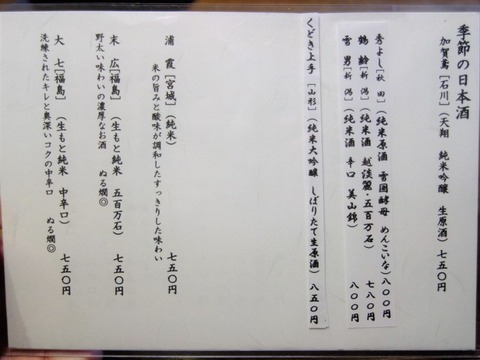 季節の日本酒
加賀鳶［石川］（天翔　純米吟醸　生原酒）七五〇円
秀よし［秋田］（純米原酒　雪国酵母　めんこいな）八〇〇円
鶴齢［新潟］（純米酒　越淡麗・五百万石）七八〇円
雪男［新潟］（純米酒　辛口　美山錦）八〇〇円
くどき上手［山形］（純米大吟醸　しぼりたて生原酒）八五〇円
浦霞［宮城］（純米）七五〇円
米の旨みと酸味が調和したすっきりした味わい
末広［福島］（生もと純米　五百万石）七五〇円
野太い味わいの濃厚なお酒　ぬる燗◎
大七［福島］（生もと純米　中辛口）七五〇円
洗練されたキレと奥深いコクの中辛口　ぬる燗◎